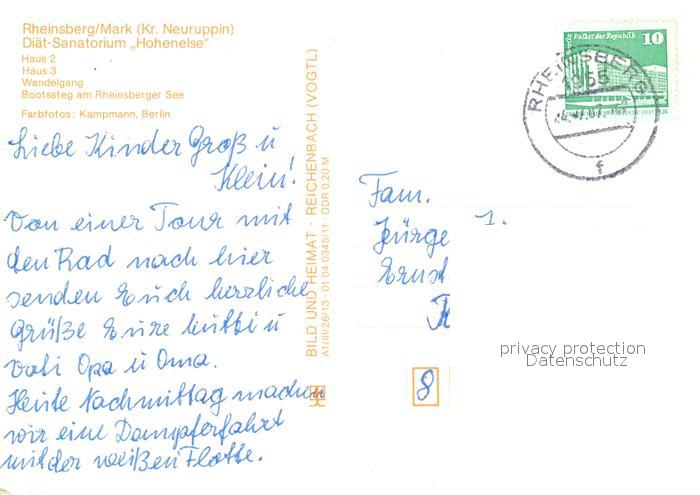 Rheinsberg/Mark (Kr. Neuruppin)
Diät-Sanatorium „Hohenelse"
Haus 2
Haus 3
Wandelgang
Bootssteg am Rheinsberger See
Farbfotos: Kampmann, Berlin
Liebe Kinder Groß u
Klein!
Von einer Tour mit
den Rad nach hier
senden Euch herzliche
Grüße Eure Mutti u
Vati Opa u Oma.
Heute Nachmittag machen
wir eine Dampferfahrt
mit der weißen Flotte.
BILD UND HEIMAT · REICHENBACH (VOGTL)
A1/III/26/13 · 01 04 0345/11 · DDR 0,20 M
Berlin Palast der Republik 10
RHEINSBERG
1955
f
Fam.
Jürge 1.
Ernst
8
privacy protection
Datenschutz